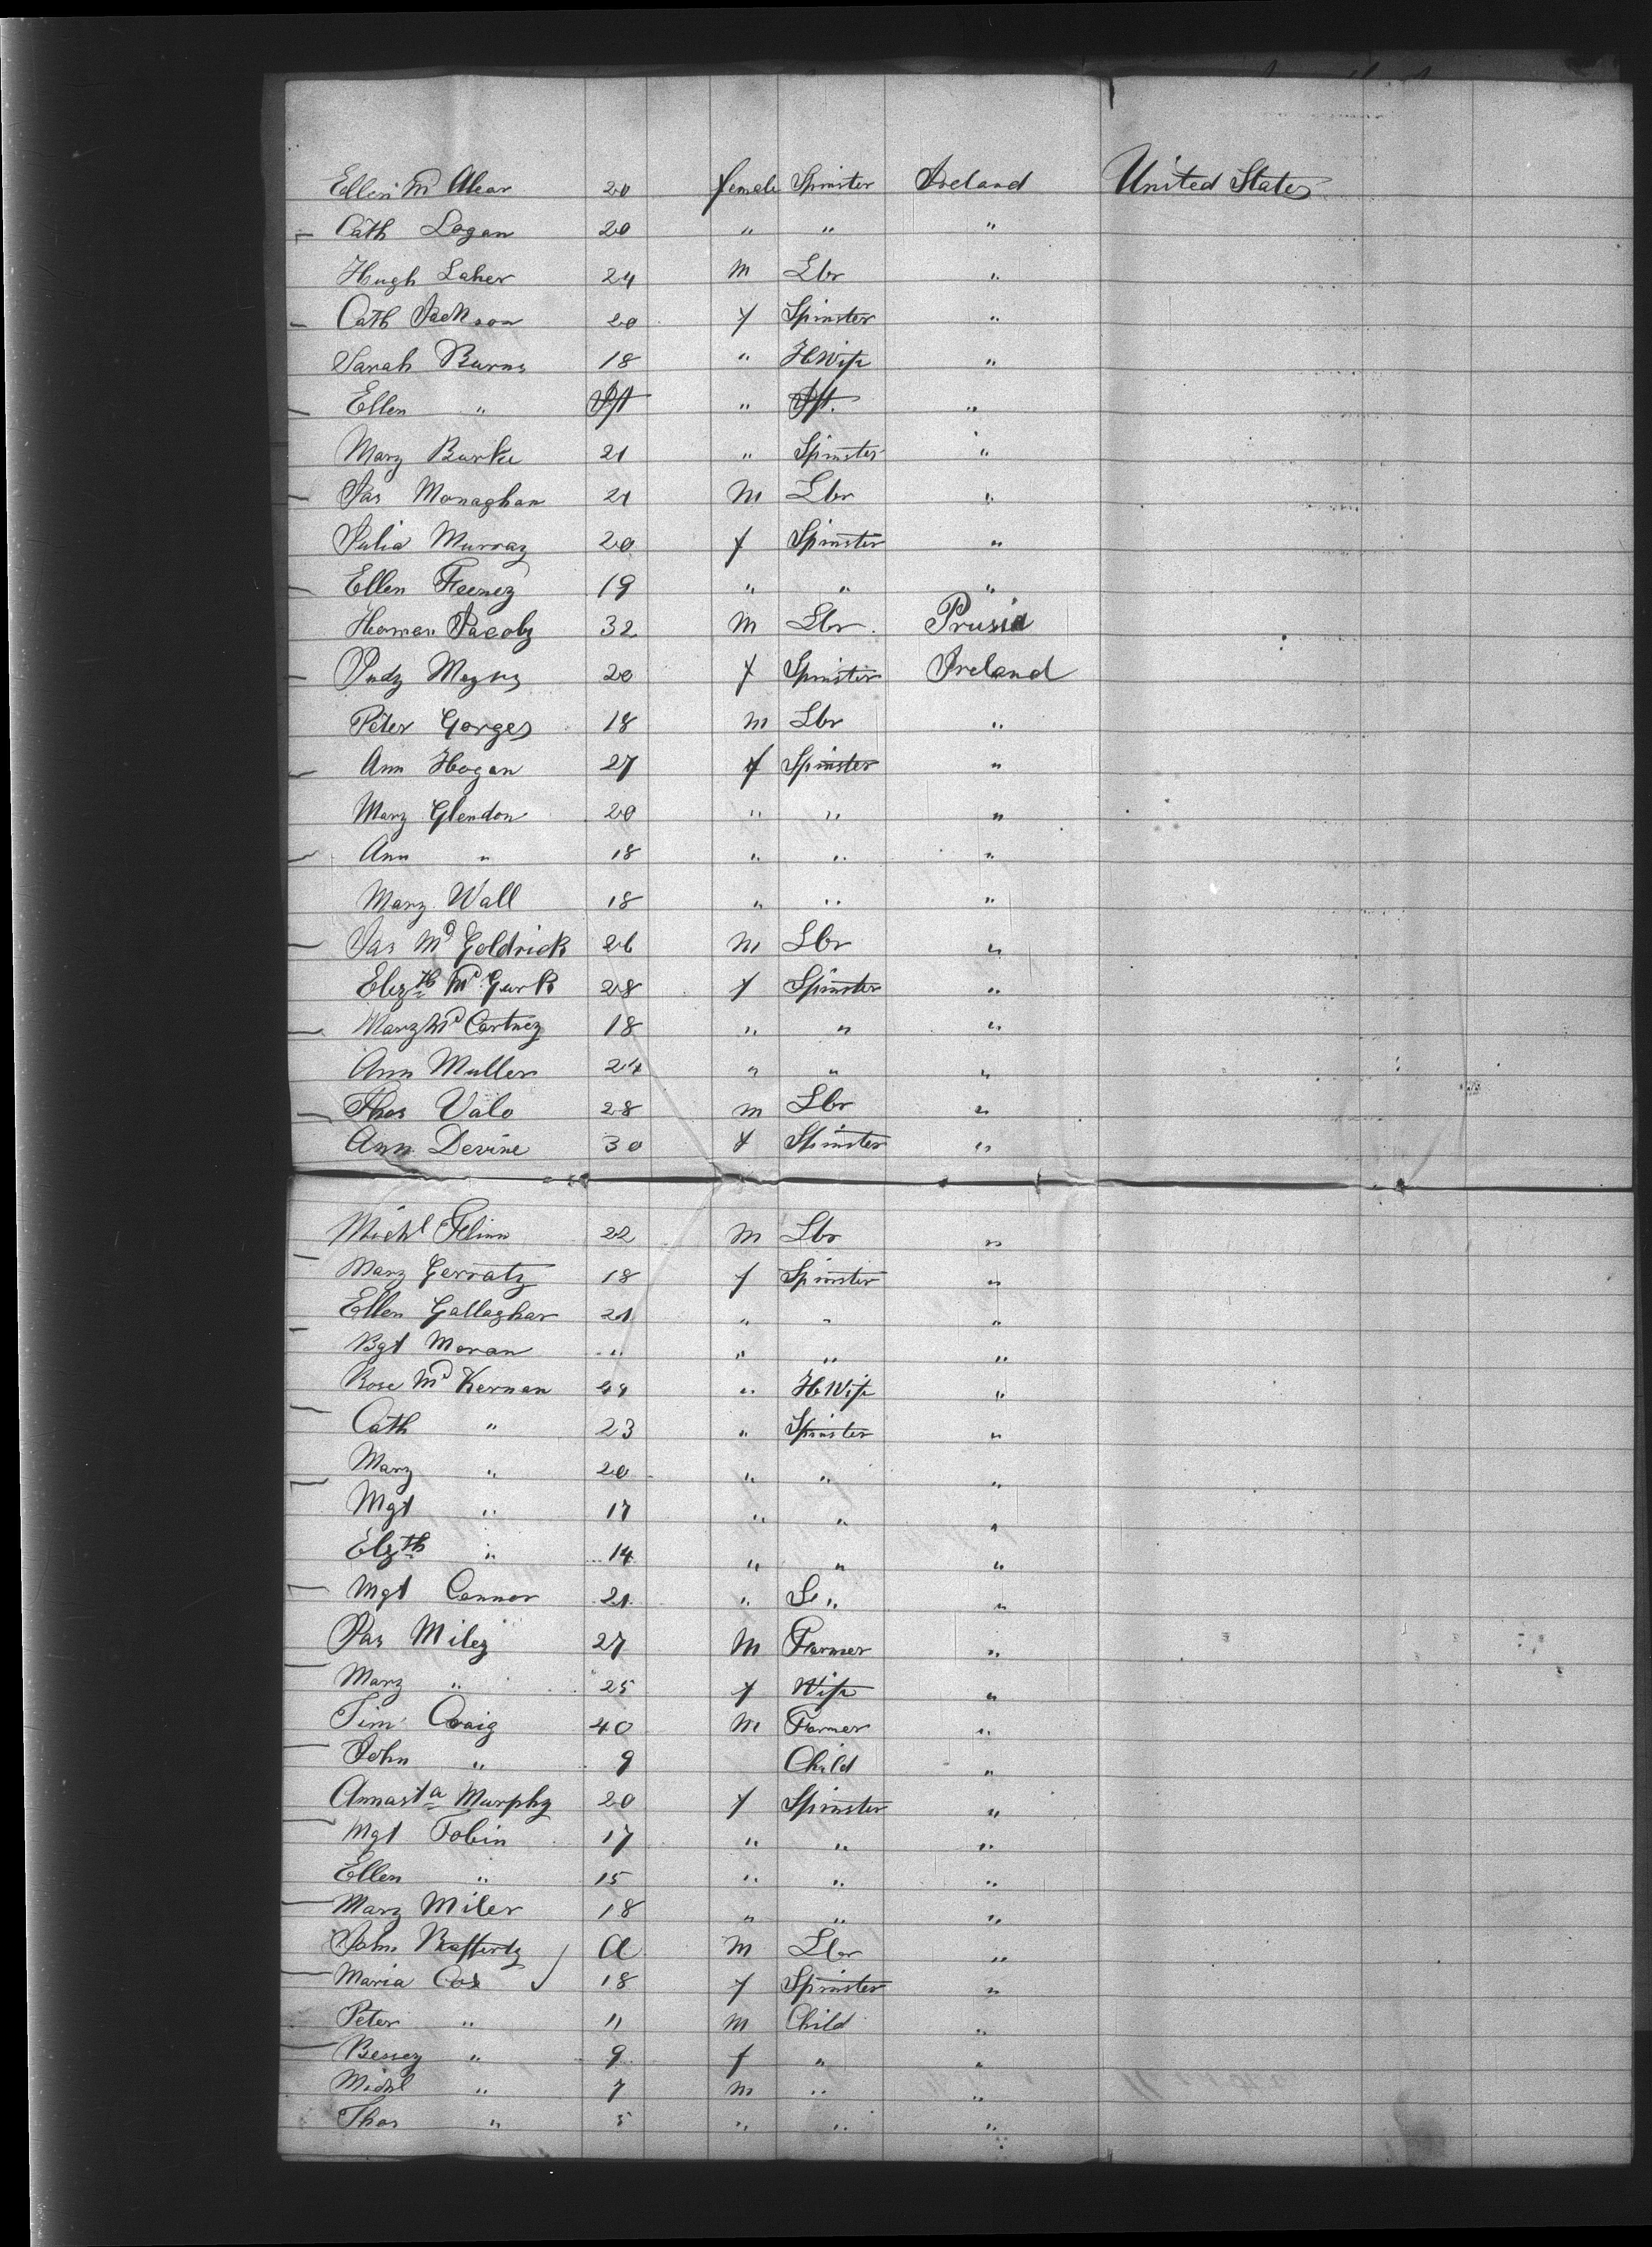 Ellen Mc Alear 20 female Spinster Ireland United States
Cath Logan 20 " " "
Hugh Laher 24 m Lbr "
Cath Jackson 20 f Spinster "
Sarah Burns 18 " HWife "
Ellen " Inft " Inft. "
Mary Burke 21 " Spinster "
Jas Monaghan 21 m Lbr "
Julia Murray 20 f Spinster "
Ellen Feeney 19 " " "
Herman Jacoby 32 m Lbr Prusia
Judy 20 f Spinster Ireland
Peter Gorges 18 m Lbr "
Ann Hogan 27 f Spinster "
Mary Glendon 20 " " "
Ann " 18 " " "
Mary Wall 18 " " "
Jas Mc Goldrick 26 m Lbr "
Elizth Mc Gurk 28 f Spinster "
Mary Mc Cartney 18 " " "
Ann Muller 24 " " "
Thos Valo 28 m Lbr "
Ann Devine 30 f Spinster "
Michl Flinn 22 m Lbr "
Mary Gerraty 18 f Spinster "
Ellen Gallaghar 21 " " "
Bgt Moran " " " "
Rose Mc Kernan " HWife "
Cath " 23 " Spinster "
Mary " 20 " " "
Mgt " 17 " " "
Elzth " 14 " " "
Mgt Connor 21 " "
Jas Miley 27 m Farmer "
Mary " 25 f Wife "
Tim Craig 40 m Farmer "
John " 9 Child "
Annasta Murphy 20 f Spinster "
Mgt Tobin 17 " " "
Ellen " 15 " " "
Mary Miler 18 " " "
John Rafferty a m Lbr "
Maria Cox 18 f Spinster "
Peter " 11 m Child "
Bessey " 9 f " "
Michl " 7 m " "
Thos " 5 " " "